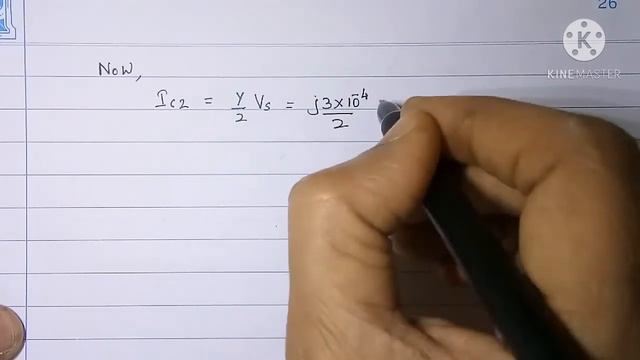 26
KINEMASTER
Now,
I_{C2} = Y/2 V_S = j 3×10^{-4}/2